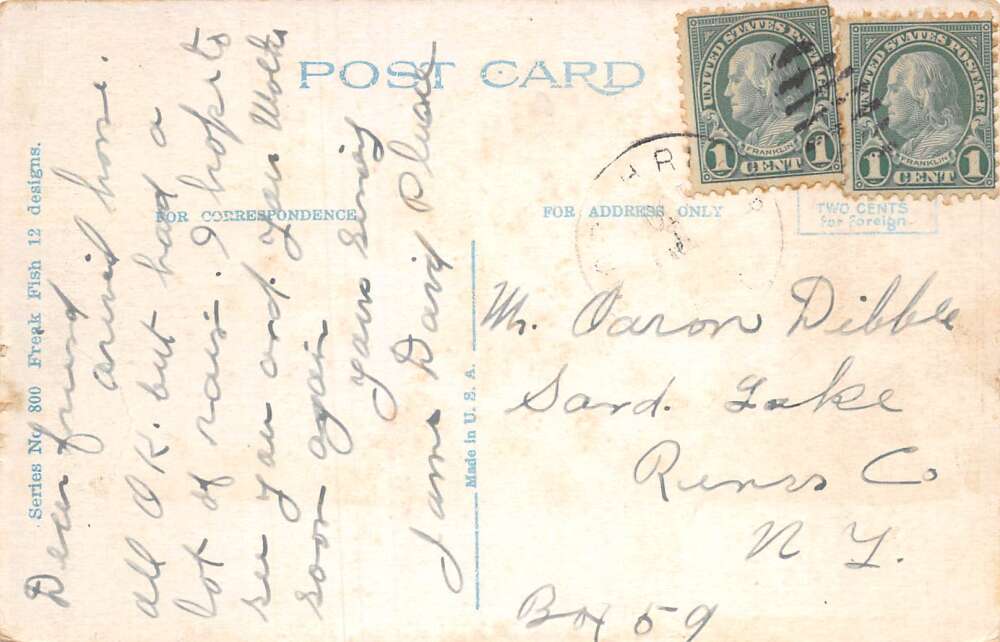 POST CARD
UNITED STATES POSTAGE
FRANKLIN
1 CENT 1
UNITED STATES POSTAGE
FRANKLIN
1 CENT 1
TWO CENTS
for foreign.
FOR CORRESPONDENCE
FOR ADDRESS ONLY
Series No 800 Freak Fish 12 designs.
Made in U. S. A.
Dear friend
arrived home.
all O K. but had a
lot of rain. I hope to
see you and your
soon again
yours
James David
Mr. Aaron Dibble
Sand. Lake
Renss Co
N Y.
Box 59